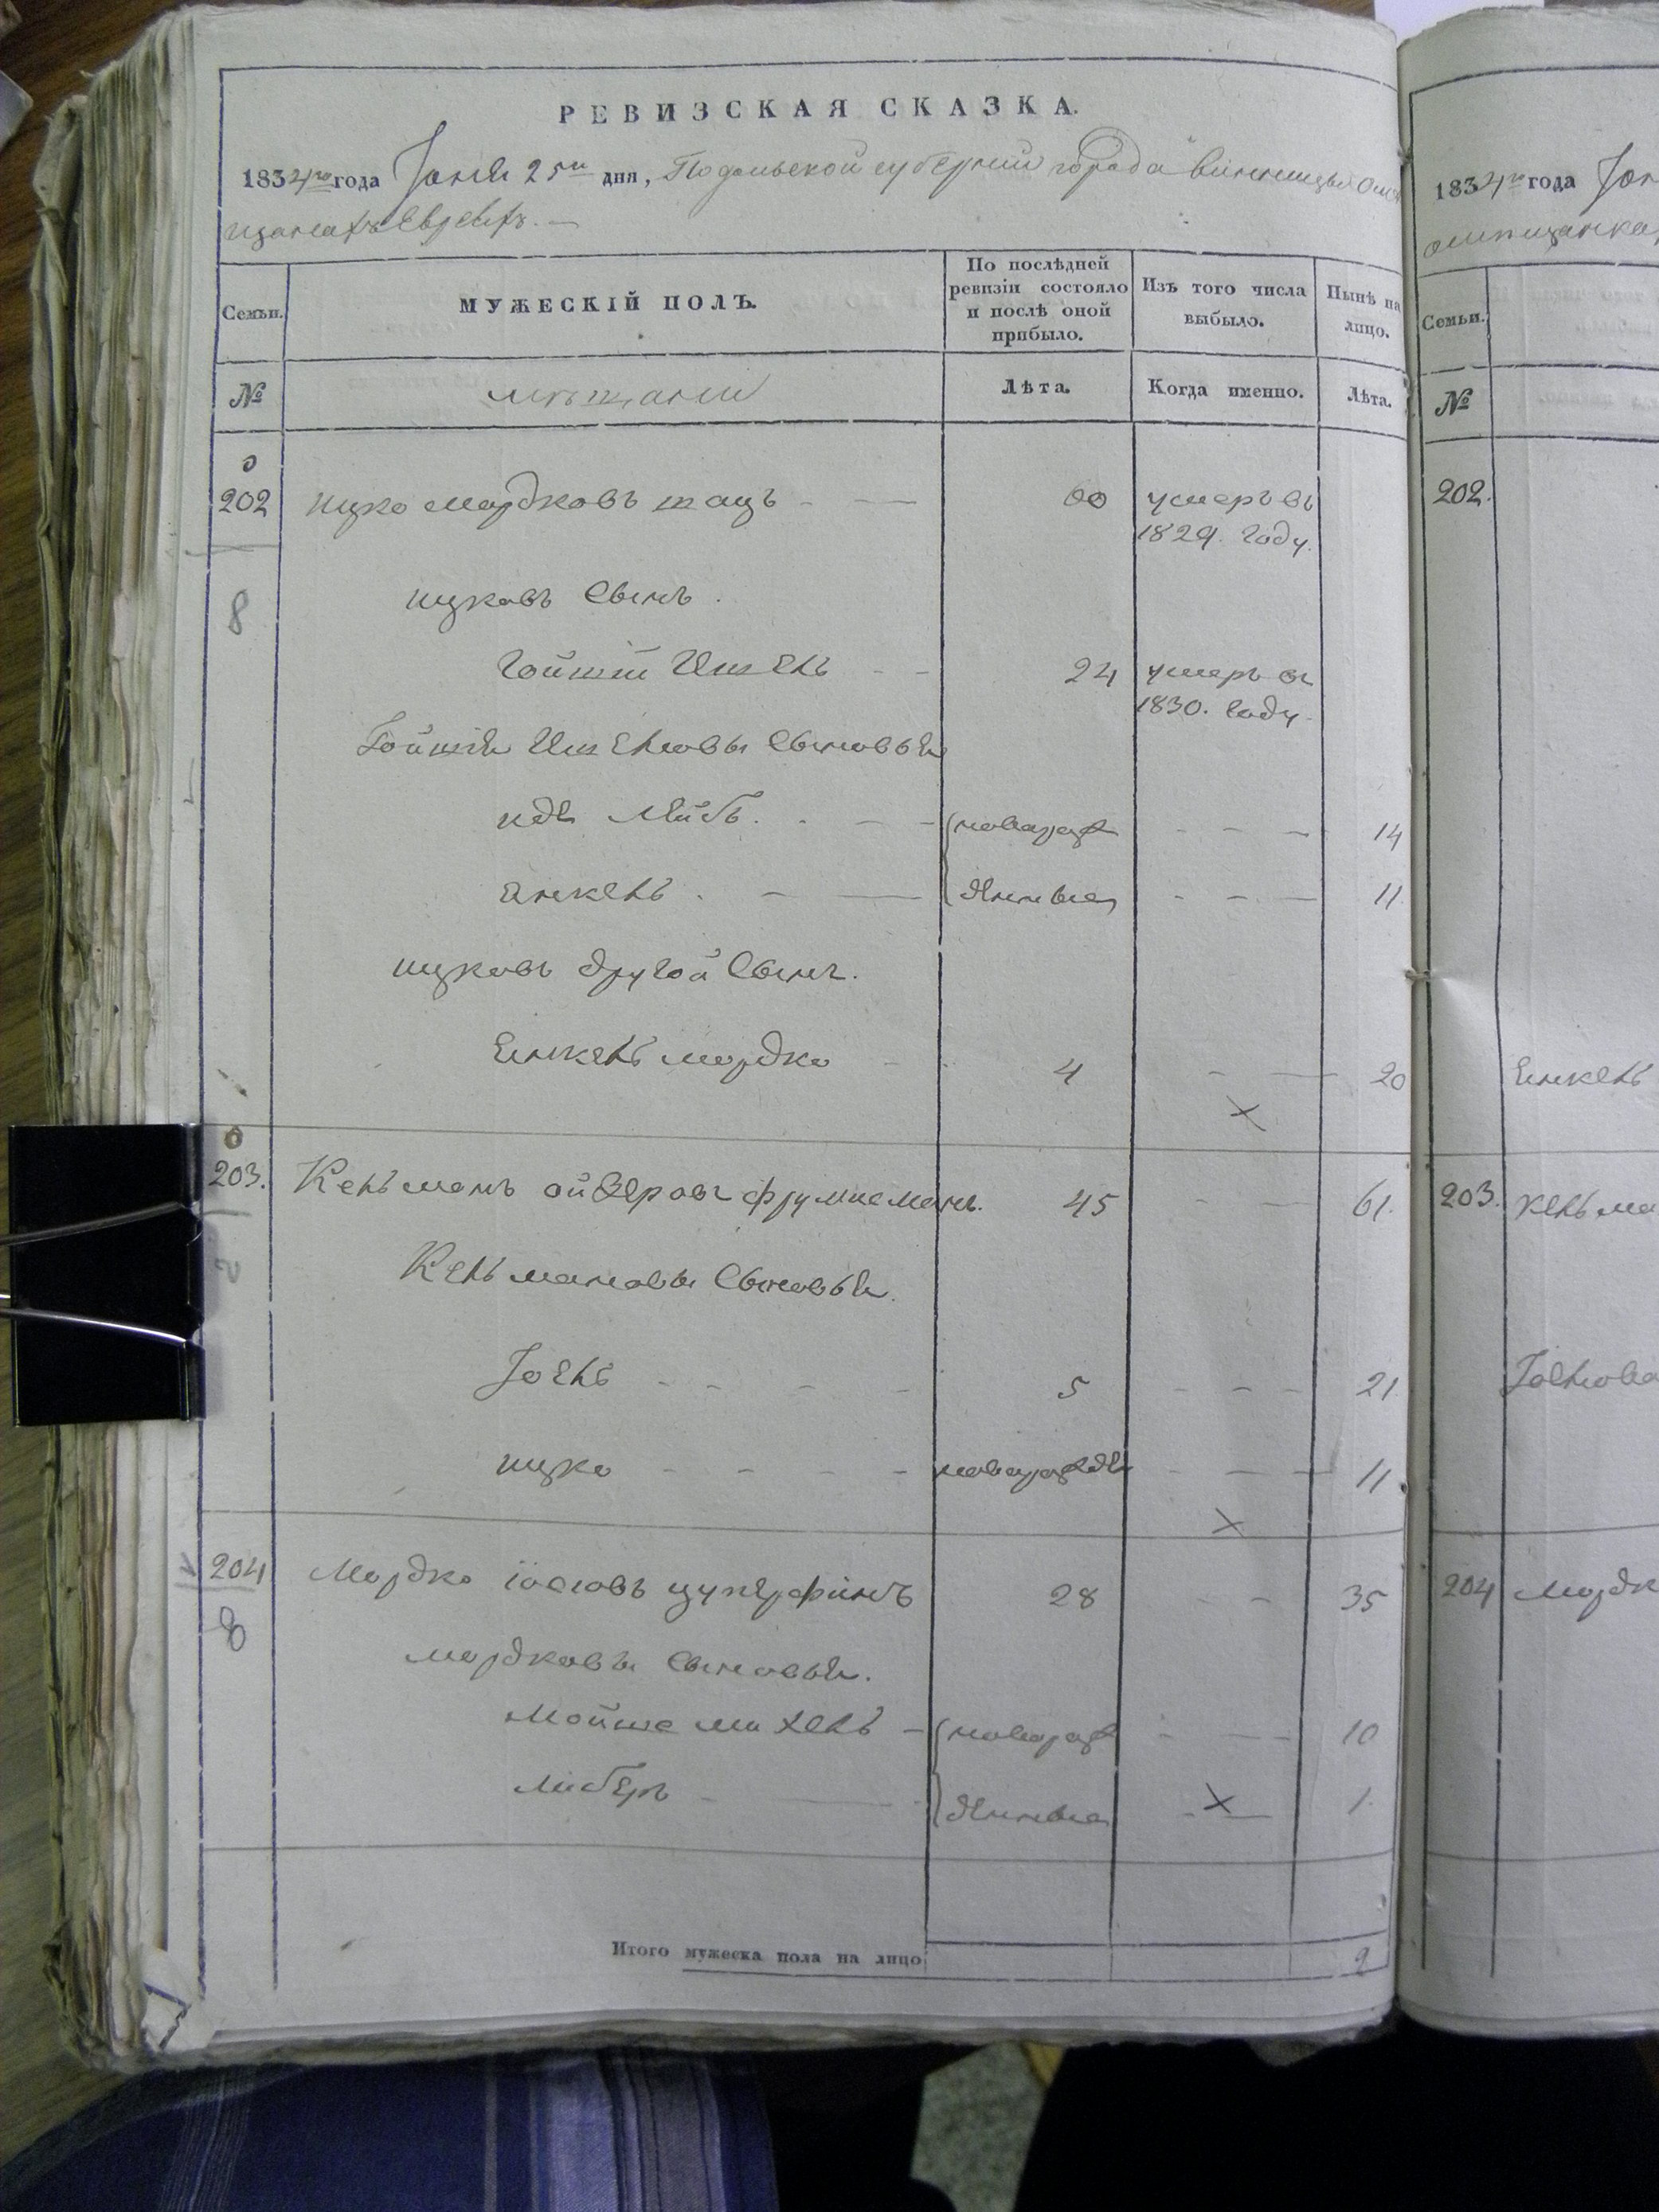 РЕВИЗСКАЯ СКАЗКА.
1834го года Іюня 25го дня, Подольской губерніи города Винницы о мѣ
щанахъ Евреяхъ.
Семьи.
МУЖЕСКІЙ ПОЛЪ.
По послѣдней ревизіи состояло и послѣ оной прибыло.
Изъ того числа выбыло.
Нынѣ на лицо.
№
мѣщане
Лѣта.
Когда именно.
Лѣта.
202 Ицко Мордковъ Шацъ 60 умеръ въ
1829. году.
8
Ицковъ сынъ.
24 умеръ въ
1830. году.
сыновья
Лейбъ. новорож 14
Янкель. денные 11
Ицковъ другой сынъ.
Янкель Мордко 4 20
203. Кельманъ 45 61.
Кельмановы сыновья.
Іоель 5 21
Ицко 11
204 Мордко 28 35
8
Мордковы сыновья.
Мойше Михель новорож 10
Либеръ денные 1
Итого мужеска пола на лицо 9
1834го года Іюн
Семьи.
№
202.
Янкель
203. Кельма
204 Мордк